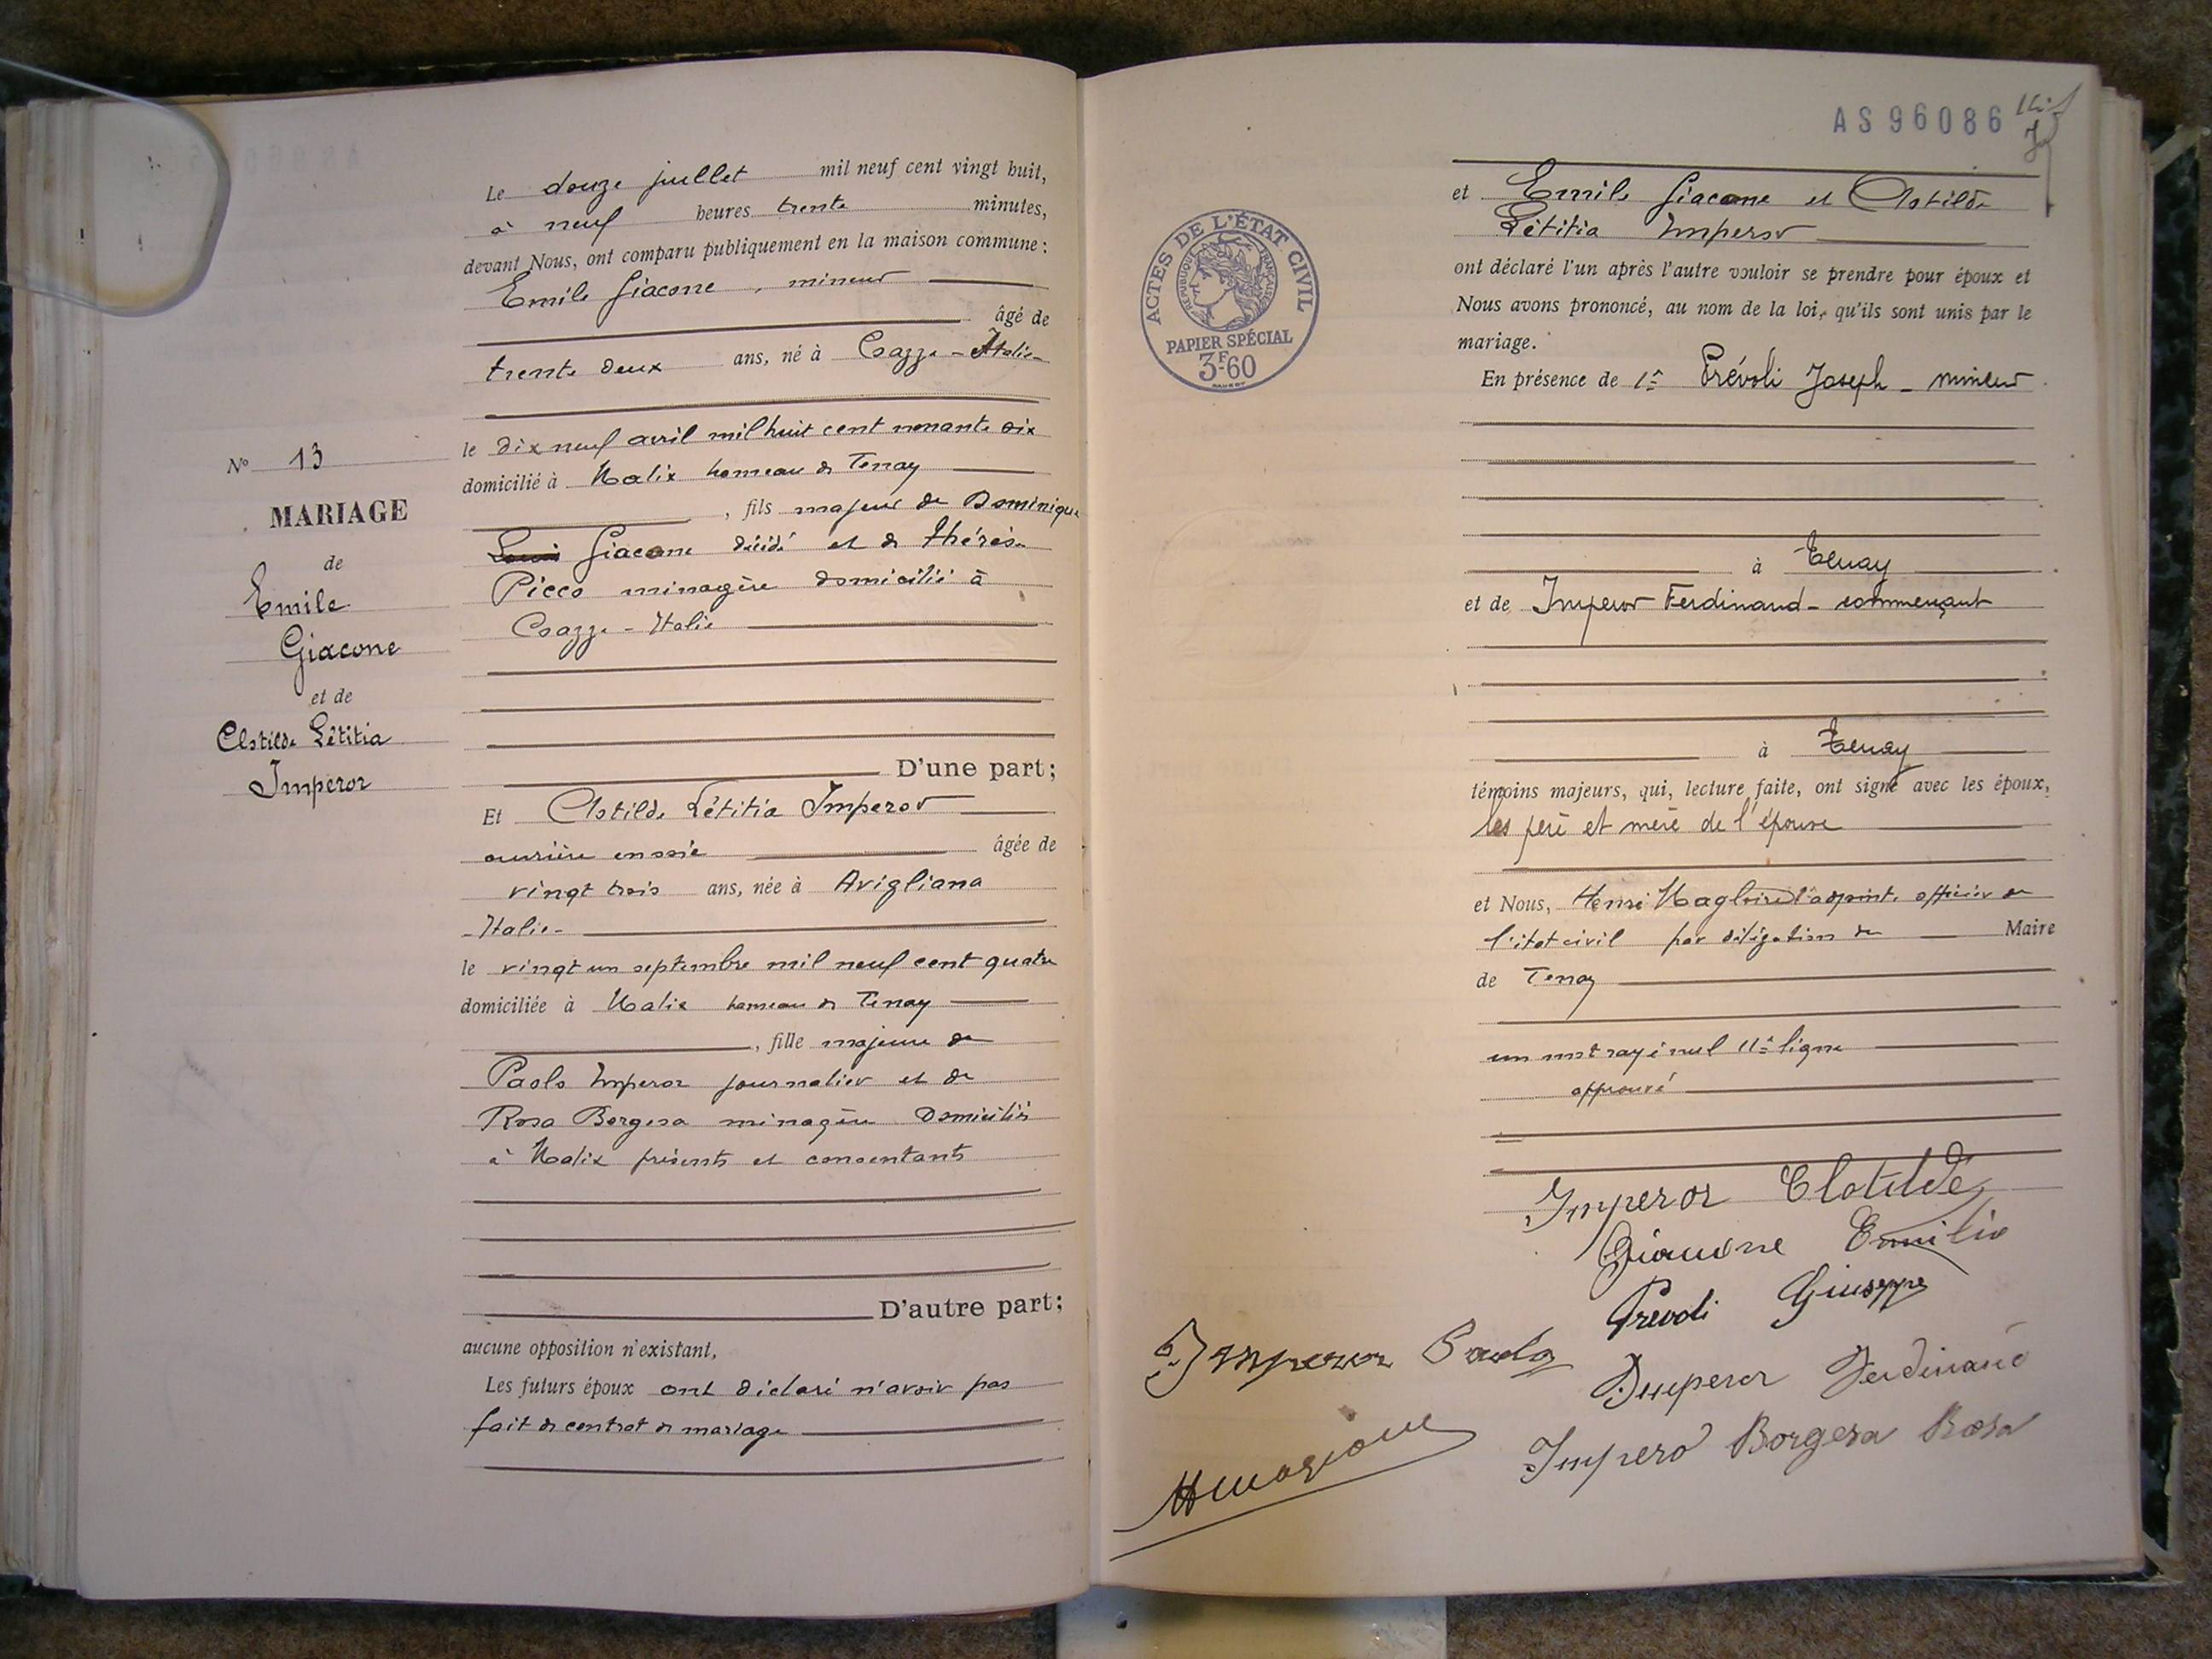 Le douze juillet mil neuf cent vingt huit,
à neuf heures trente minutes,
devant Nous, ont comparu publiquement en la maison commune :
Emile Giacone, mineur
âgé de
trente deux ans, né à Coazze - Italie
le dix neuf avril mil huit cent nonante six
domicilié à Malix hameau de Tenay
, fils majeur de Dominique
Louis Giacone décédé et de Thérèse
Picco ménagère domiciliée à
Coazze - Italie
D'une part;
Et Clotilde Létitia Imperor
ouvrière en soie âgée de
vingt trois ans, née à Avigliana
- Italie -
le vingt un septembre mil neuf cent quatre
domiciliée à Malix hameau de Tenay
, fille majeure de
Paolo Imperor journalier et de
Rosa Borgesa ménagère domiciliés
à Malix présents et consentants
D'autre part;
aucune opposition n'existant,
Les futurs époux ont déclaré n'avoir pas
fait de contrat de mariage
N° 13
MARIAGE
de
Emile
Giacone
et de
Clotilde Létitia
Imperor
AS 96086
ACTES DE L'ÉTAT CIVIL
RÉPUBLIQUE FRANÇAISE
PAPIER SPÉCIAL
3F.60
et Emile Giacone et Clotilde
Létitia Imperor
ont déclaré l'un après l'autre vouloir se prendre pour époux et
Nous avons prononcé, au nom de la loi, qu'ils sont unis par le
mariage.
En présence de 1° Prévoli Joseph - mineur
à Tenay
et de Imperor Ferdinand - commerçant
à Tenay
témoins majeurs, qui, lecture faite, ont signé avec les époux,
les père et mère de l'épouse
et Nous, Henri Magloire l'adjoint, officier de
l'état civil par délégation du Maire
de Tenay
un mot rayé nul 11e ligne
approuvé
Imperor Clotilde
Giacone Emilio
Prevoli Giuseppe
Imperor Paolo
Imperor Ferdinand
Impero Borgesa Rosa